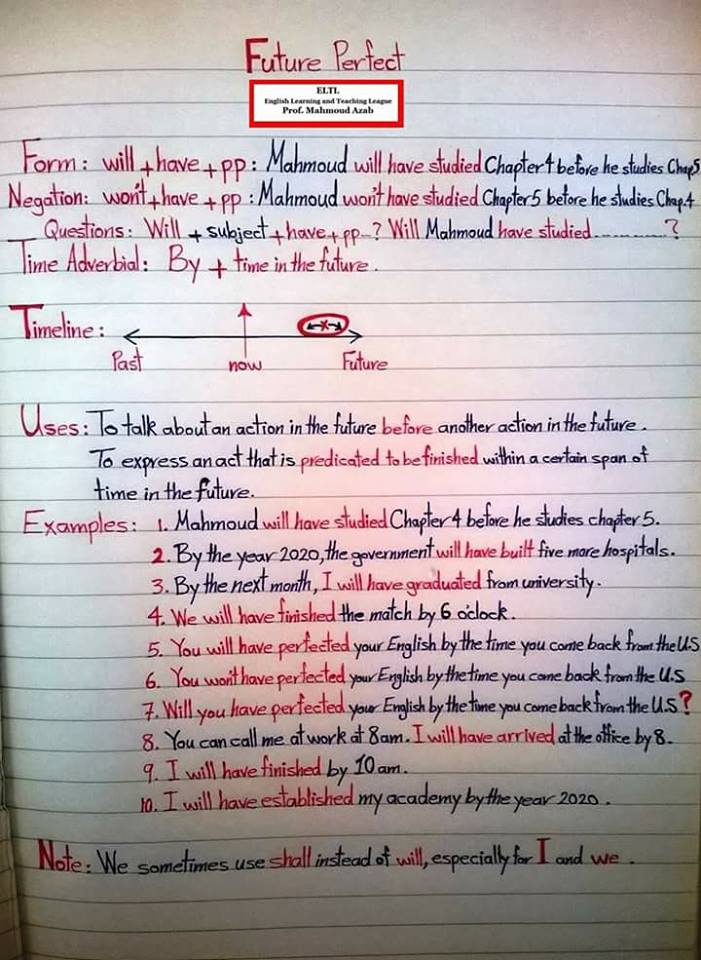 Future Perfect
ELTL
English Learning and Teaching League
Prof. Mahmoud Azab
Form: will + have + pp : Mahmoud will have studied Chapter 4 before he studies Chap5
Negation: won't + have + pp : Mahmoud won't have studied Chapter5 before he studies Chap.4
Questions: Will + subject + have + pp...? Will Mahmoud have studied.............?
Time Adverbial: By + time in the future.
Timeline:
x
Past now Future
Uses: To talk about an action in the future before another action in the future.
To express an act that is predicated to be finished within a certain span of
time in the future.
Examples: 1. Mahmoud will have studied Chapter 4 before he studies chapter 5.
2. By the year 2020, the government will have built five more hospitals.
3. By the next month, I will have graduated from university.
4. We will have finished the match by 6 o'clock.
5. You will have perfected your English by the time you come back from the U.S
6. You won't have perfected your English by the time you come back from the U.S
7. Will you have perfected your English by the time you come back from the U.S?
8. You can call me at work at 8am. I will have arrived at the office by 8.
9. I will have finished by 10 am.
10. I will have established my academy by the year 2020.
Note: We sometimes use shall instead of will, especially for I and we.